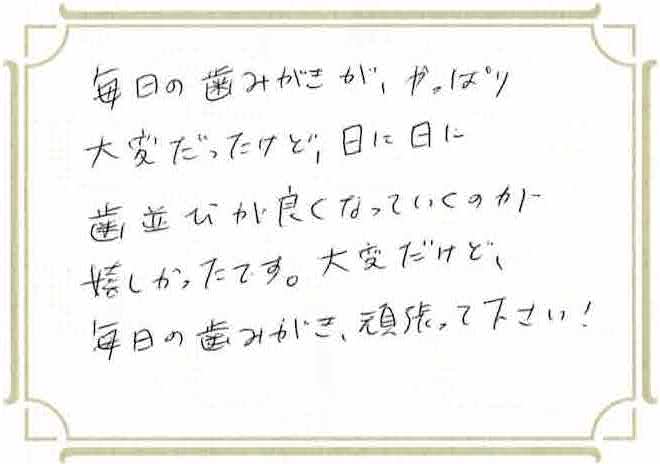 毎日の歯みがきが、やっぱり
大変だったけど、日に日に
歯並びが良くなっていくのが
嬉しかったです。大変だけど、
毎日の歯みがき、頑張って下さい!